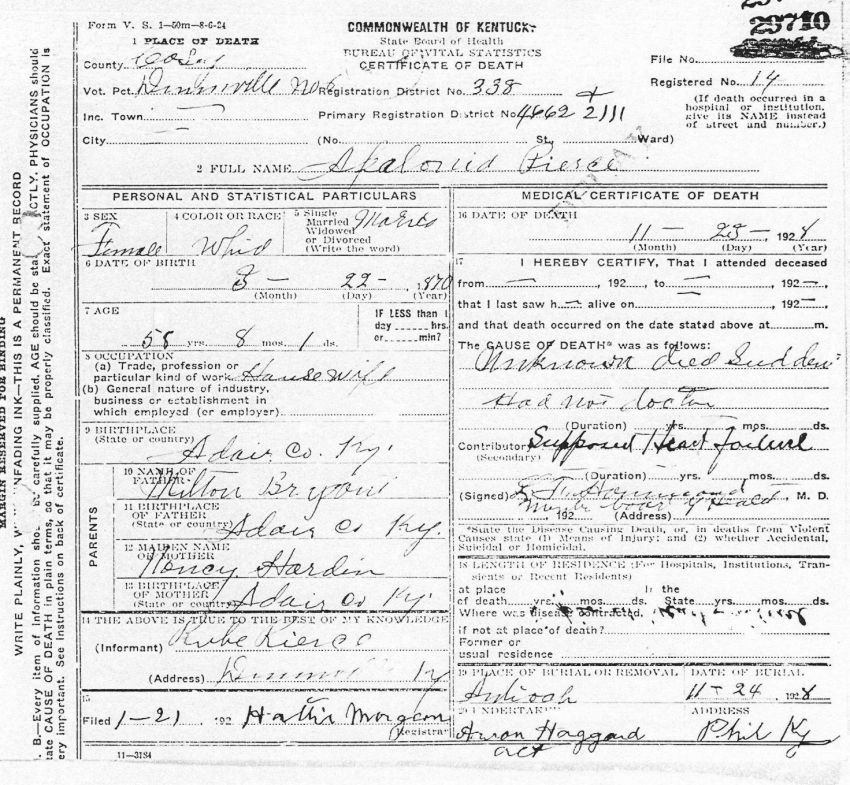 Form V. S. 1—50m—8-6-24
COMMONWEALTH OF KENTUCKY
State Board of Health
BUREAU OF VITAL STATISTICS
CERTIFICATE OF DEATH
1 PLACE OF DEATH
County Casey
Vot. Pct. Dunnville No
Inc. Town
City
Registration District No. 338
Primary Registration District No. 4862 2111
(No. St. Ward)
File No. 29710
Registered No. 14
(If death occurred in a
hospital or institution,
give its NAME instead
of street and number.)
2 FULL NAME Pierce
PERSONAL AND STATISTICAL PARTICULARS
3 SEX
Female
4 COLOR OR RACE
Whid
5 Single
Married
Widowed
or Divorced
(Write the word)
6 DATE OF BIRTH
3— 22— , 1870
(Month) (Day) (Year)
7 AGE
58 yrs. 8 mos. 1 ds.
IF LESS than 1
day ...... hrs.
or ...... min?
8 OCCUPATION
(a) Trade, profession or
particular kind of work House wife
(b) General nature of industry,
business or establishment in
which employed (er employer)
9 BIRTHPLACE
(State or country)
Adair Co. Ky.
PARENTS
10 NAME OF
FATHER
Milton Bryant
11 BIRTHPLACE
OF FATHER
(State or country) Adair Co Ky.
12 MAIDEN NAME
OF MOTHER
Noncy Hardin
13 BIRTHPLACE
OF MOTHER
(State or country) Adair Co Ky
14 THE ABOVE IS TRUE TO THE BEST OF MY KNOWLEDGE
(Informant) Rube Pierce
(Address) Ky
15
Filed 1-21 , 192 Hattie Morgan
Registrar
11—3184
MEDICAL CERTIFICATE OF DEATH
16 DATE OF DEATH
11— 23— , 1928
(Month) (Day) (Year)
17 I HEREBY CERTIFY, That I attended deceased
from — , 192 , to — , 192 —,
that I last saw h— alive on , 192—,
and that death occurred on the date stated above at m.
The CAUSE OF DEATH* was as follows:
Unknown died Sudden
Had not doctor
(Duration) yrs. mos. ds.
Contributory Supposed Heart failure
(Secondary)
(Duration) yrs. mos. ds.
(Signed) , M. D.
192 (Address)
*State the Disease Causing Death, or, in deaths from Violent
Causes state (1) Means of Injury; and (2) whether Accidental,
Suicidal or Homicidal.
18 LENGTH OF RESIDENCE (For Hospitals, Institutions, Tran-
sients or Recent Residents)
at place In the
of death yrs. mos. ds. State yrs. mos. ds.
Where was disease contracted,
if not at place of death?
Former or
usual residence
19 PLACE OF BURIAL OR REMOVAL
Antioch
DATE OF BURIAL
11-24 , 1928
20 UNDERTAKER
Aaron Haggard
act
ADDRESS
Phil Ky
MARGIN RESERVED FOR BINDING
WRITE PLAINLY, W NFADING INK—THIS IS A PERMANENT RECORD
. B.—Every item of information shou be carefully supplied. AGE should be sta CTLY. PHYSICIANS should
tate CAUSE OF DEATH in plain terms, so that it may be properly classified. Exact statement of OCCUPATION is
ery important. See instructions on back of certificate.